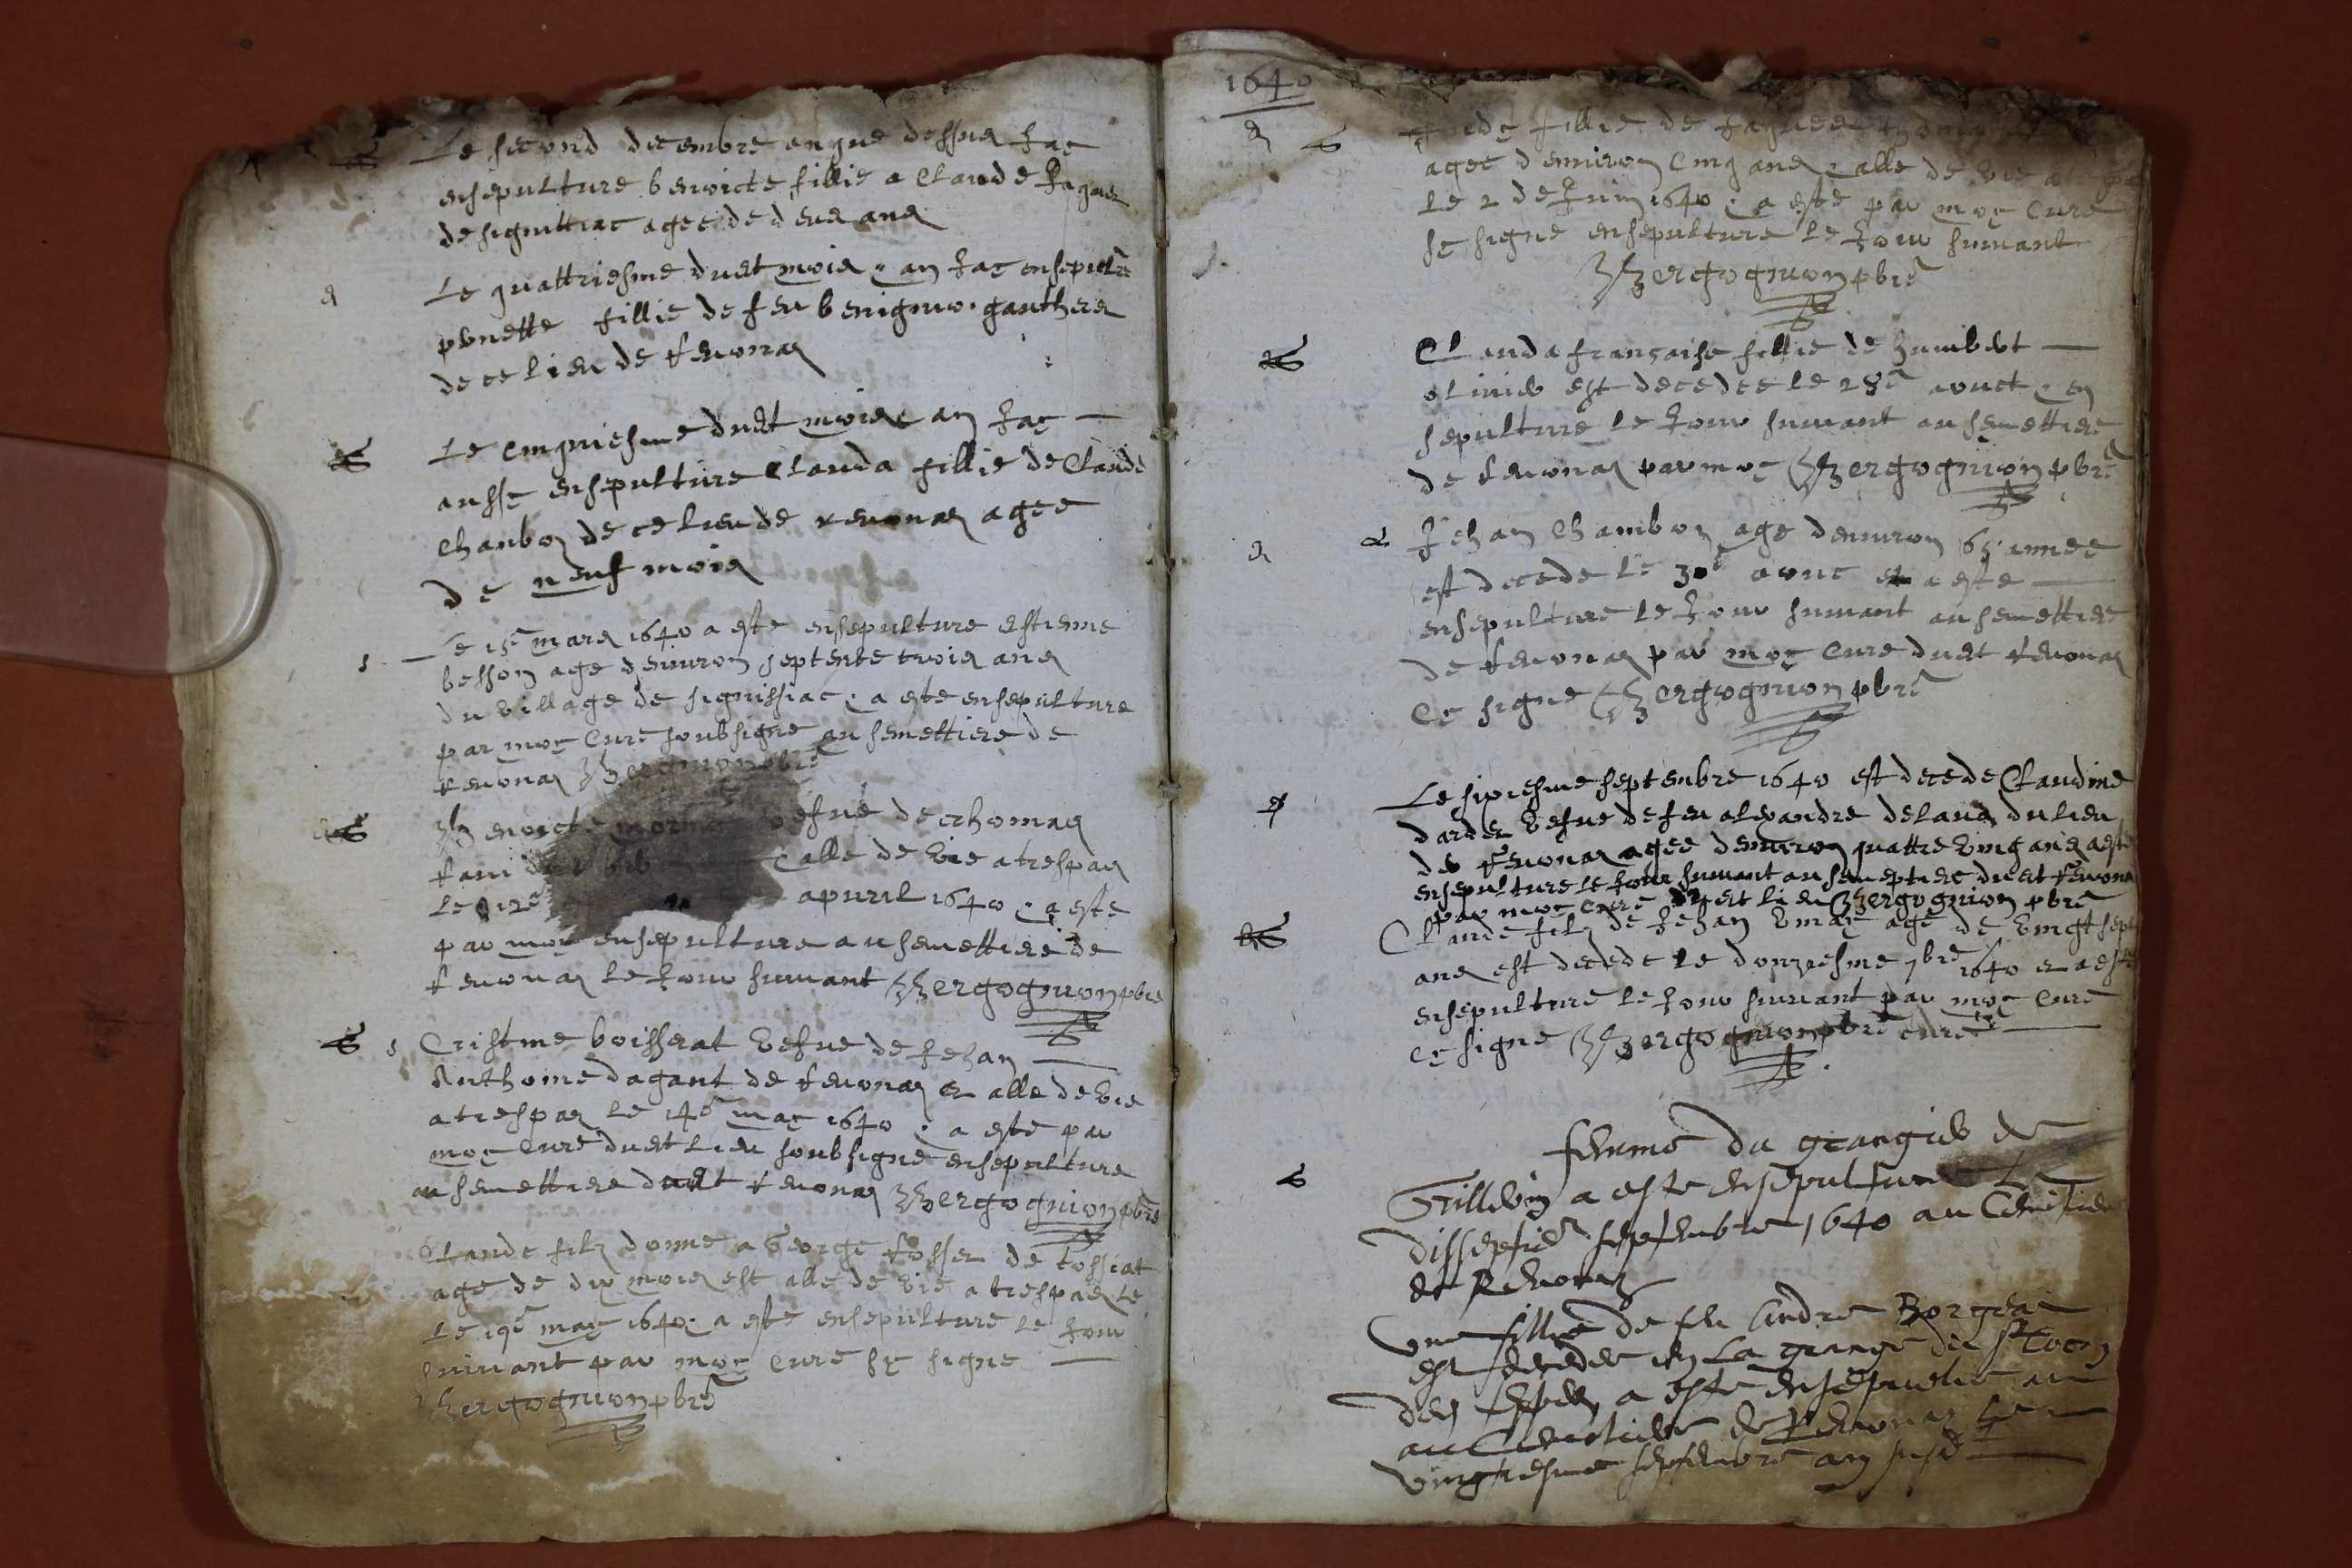 Le second decembre en que dessus jay
ensepulture benoicte fillie a Claude
de signissiac agee de deux ans
Le quattriesme dudt mois & an jay ensepulture
ponette fillie de feu benigno gauthier
de ce lieu de Revonas
Le cinquiesme dudt mois & an jay
aussy ensepulture Clauda fillie de Claude
Chanbon de ce lieu de revonas agee
de neuf mois
Le 15e mars 1640 a este ensepulture estienne
besson age denviron septente trois ans
du village de signissiac & a este ensepulture
par moy Cure soubsigne au semettiere de
revonas Bergognion pbre
Benoicte vefue de thomas
alle de vie a trespas
apvril 1640 & a este
par moy ensepulture au semettiere de
Revonas le jour suivant Bergognion pbre
Cristine boisserat vefue de jehan
Anthoine dagant de Revonas est alle de vie
a trespas le 14e may 1640 & a este par
moy Cure dudt lieu soubsigne ensepulture
au semettiere dudt Revonas Bergognion pbre
Claude filz donne a George de tossiat
age de dix mois est alle de vie a trespas le
Le 19e may 1640 & a este ensepulture le jour
suivant par moy Cure sy signe
Bergognion pbre
1640
fillie de
agee denviron cinq ans & alle de vie a
Le 2 de Juin 1640 & a este par moy Cure
sy signe ensepulture le jour suivant
Bergognion pbre
Clauda françoise fillie de humbert
olivier est decedee le 28e aoust & en
sepulture le jour suivant au semettiere
de Revonas par moy Bergognion pbre
Jehan Chambon age denviron annee
est decede le 30e aoust et a este
ensepulture le jour suivant au semettiere
de Revonas par moy Cure dudt Revonas
Cy signe Bergognion pbre
Le sixiesme septembre 1640 est decede Claudine
vefue de feu alexandre du lieu
de Revonas agee denviron quattre vingt ans a este
ensepulture le jour suivant au semeptiere dudt Revonas
par moy cure dudt lieu Bergognion pbre
Claude filz de Jehan age de vingt sept
ans est decede le douziesme 7bre 1640 et a este
ensepulture le jour suivant par moy Cure
Cy signe Bergognion pbre cure
femme du grangier de
a este ensepulturee Le
septembre 1640 au Cemitiere
de Revonas
une fillie de feu Andre
est decedee en La grange du
a este ensepvelie au
au Cemetiere de Revonas Le
vingtiesme septembre an susd